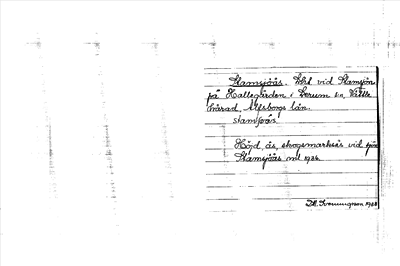 Stamsjöås. Höjd vid Stamsjön
på Hallegården i Lerum sn, Vättle
härad, Älfsborgs län.
stamsjoås
Höjd, ås, skogsmarksås vid sjön
Stamsjöås inf 1928.
1928